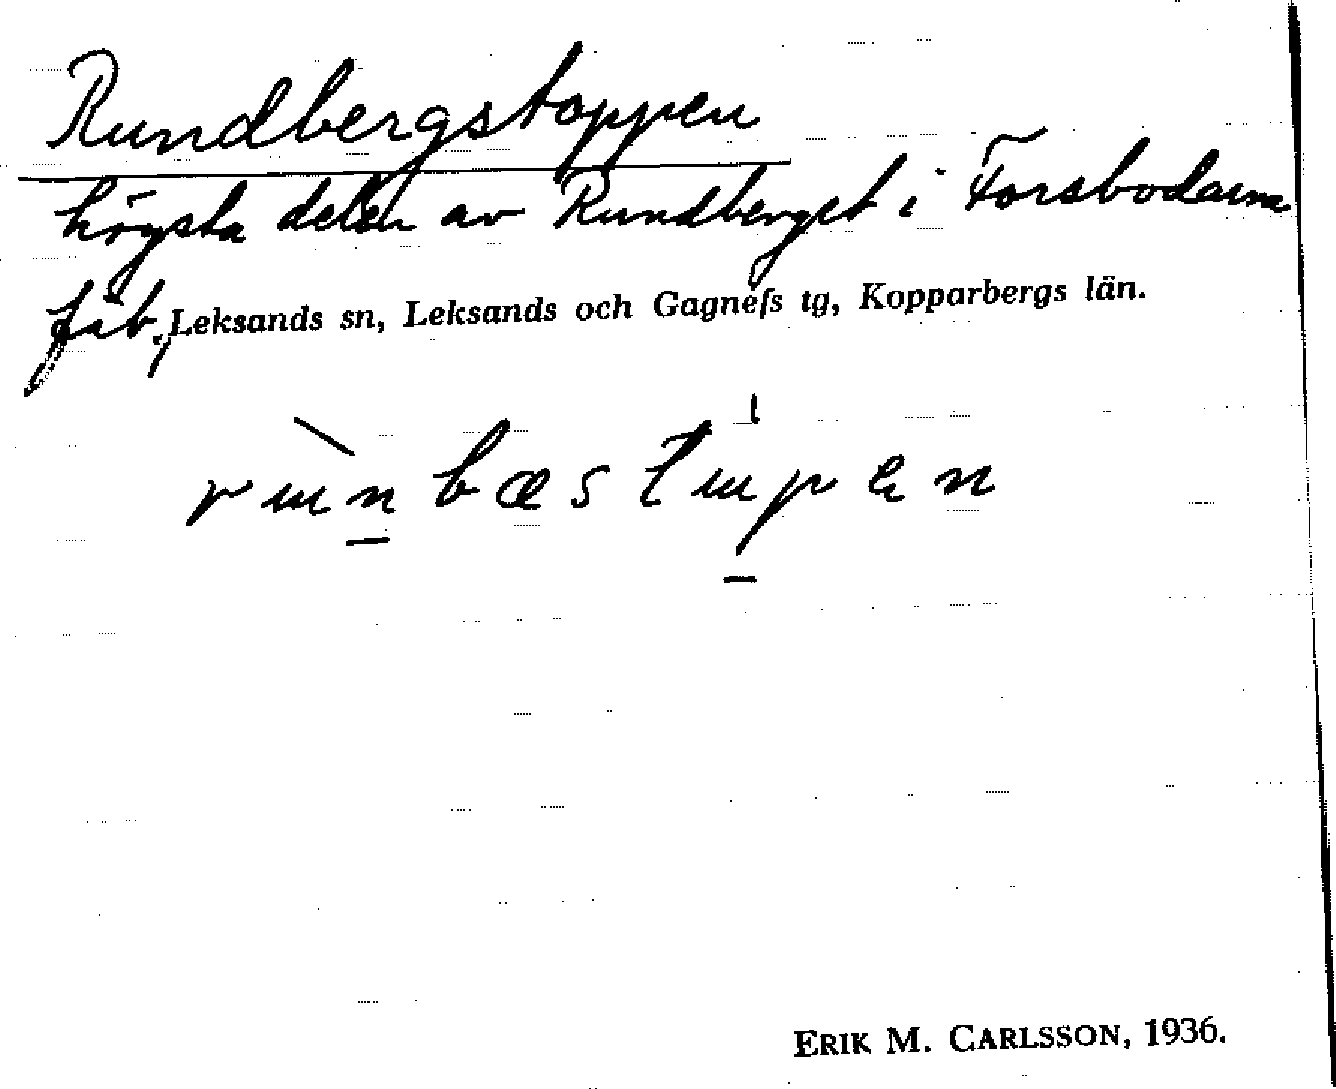 Rundbergstoppen
högsta delen av Rundberget i Forsbodarna
fäb., Leksands sn, Leksands och Gagnefs tg, Kopparbergs län.
ERIK M. CARLSSON, 1936.